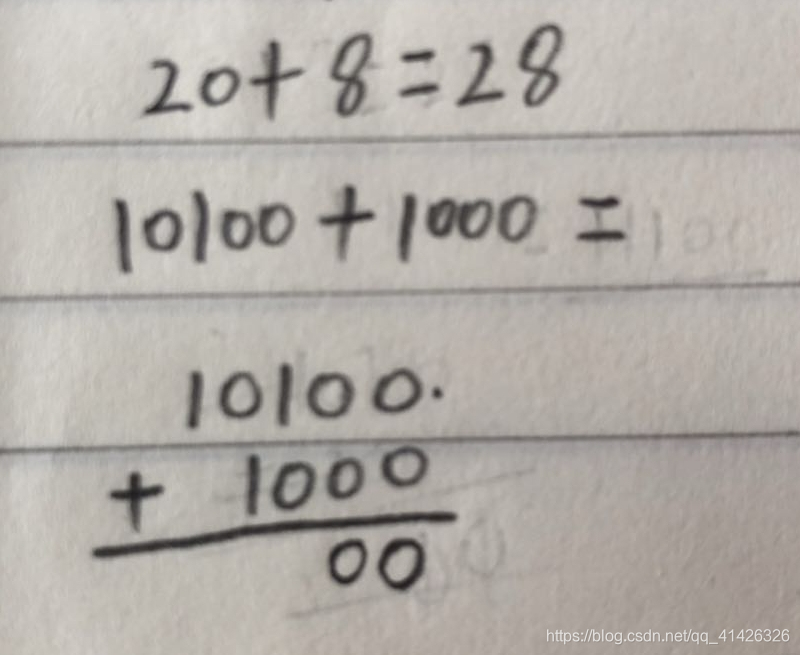 20+8=28
10100+1000=
10100.
+ 1000
00
https://blog.csdn.net/qq_41426326